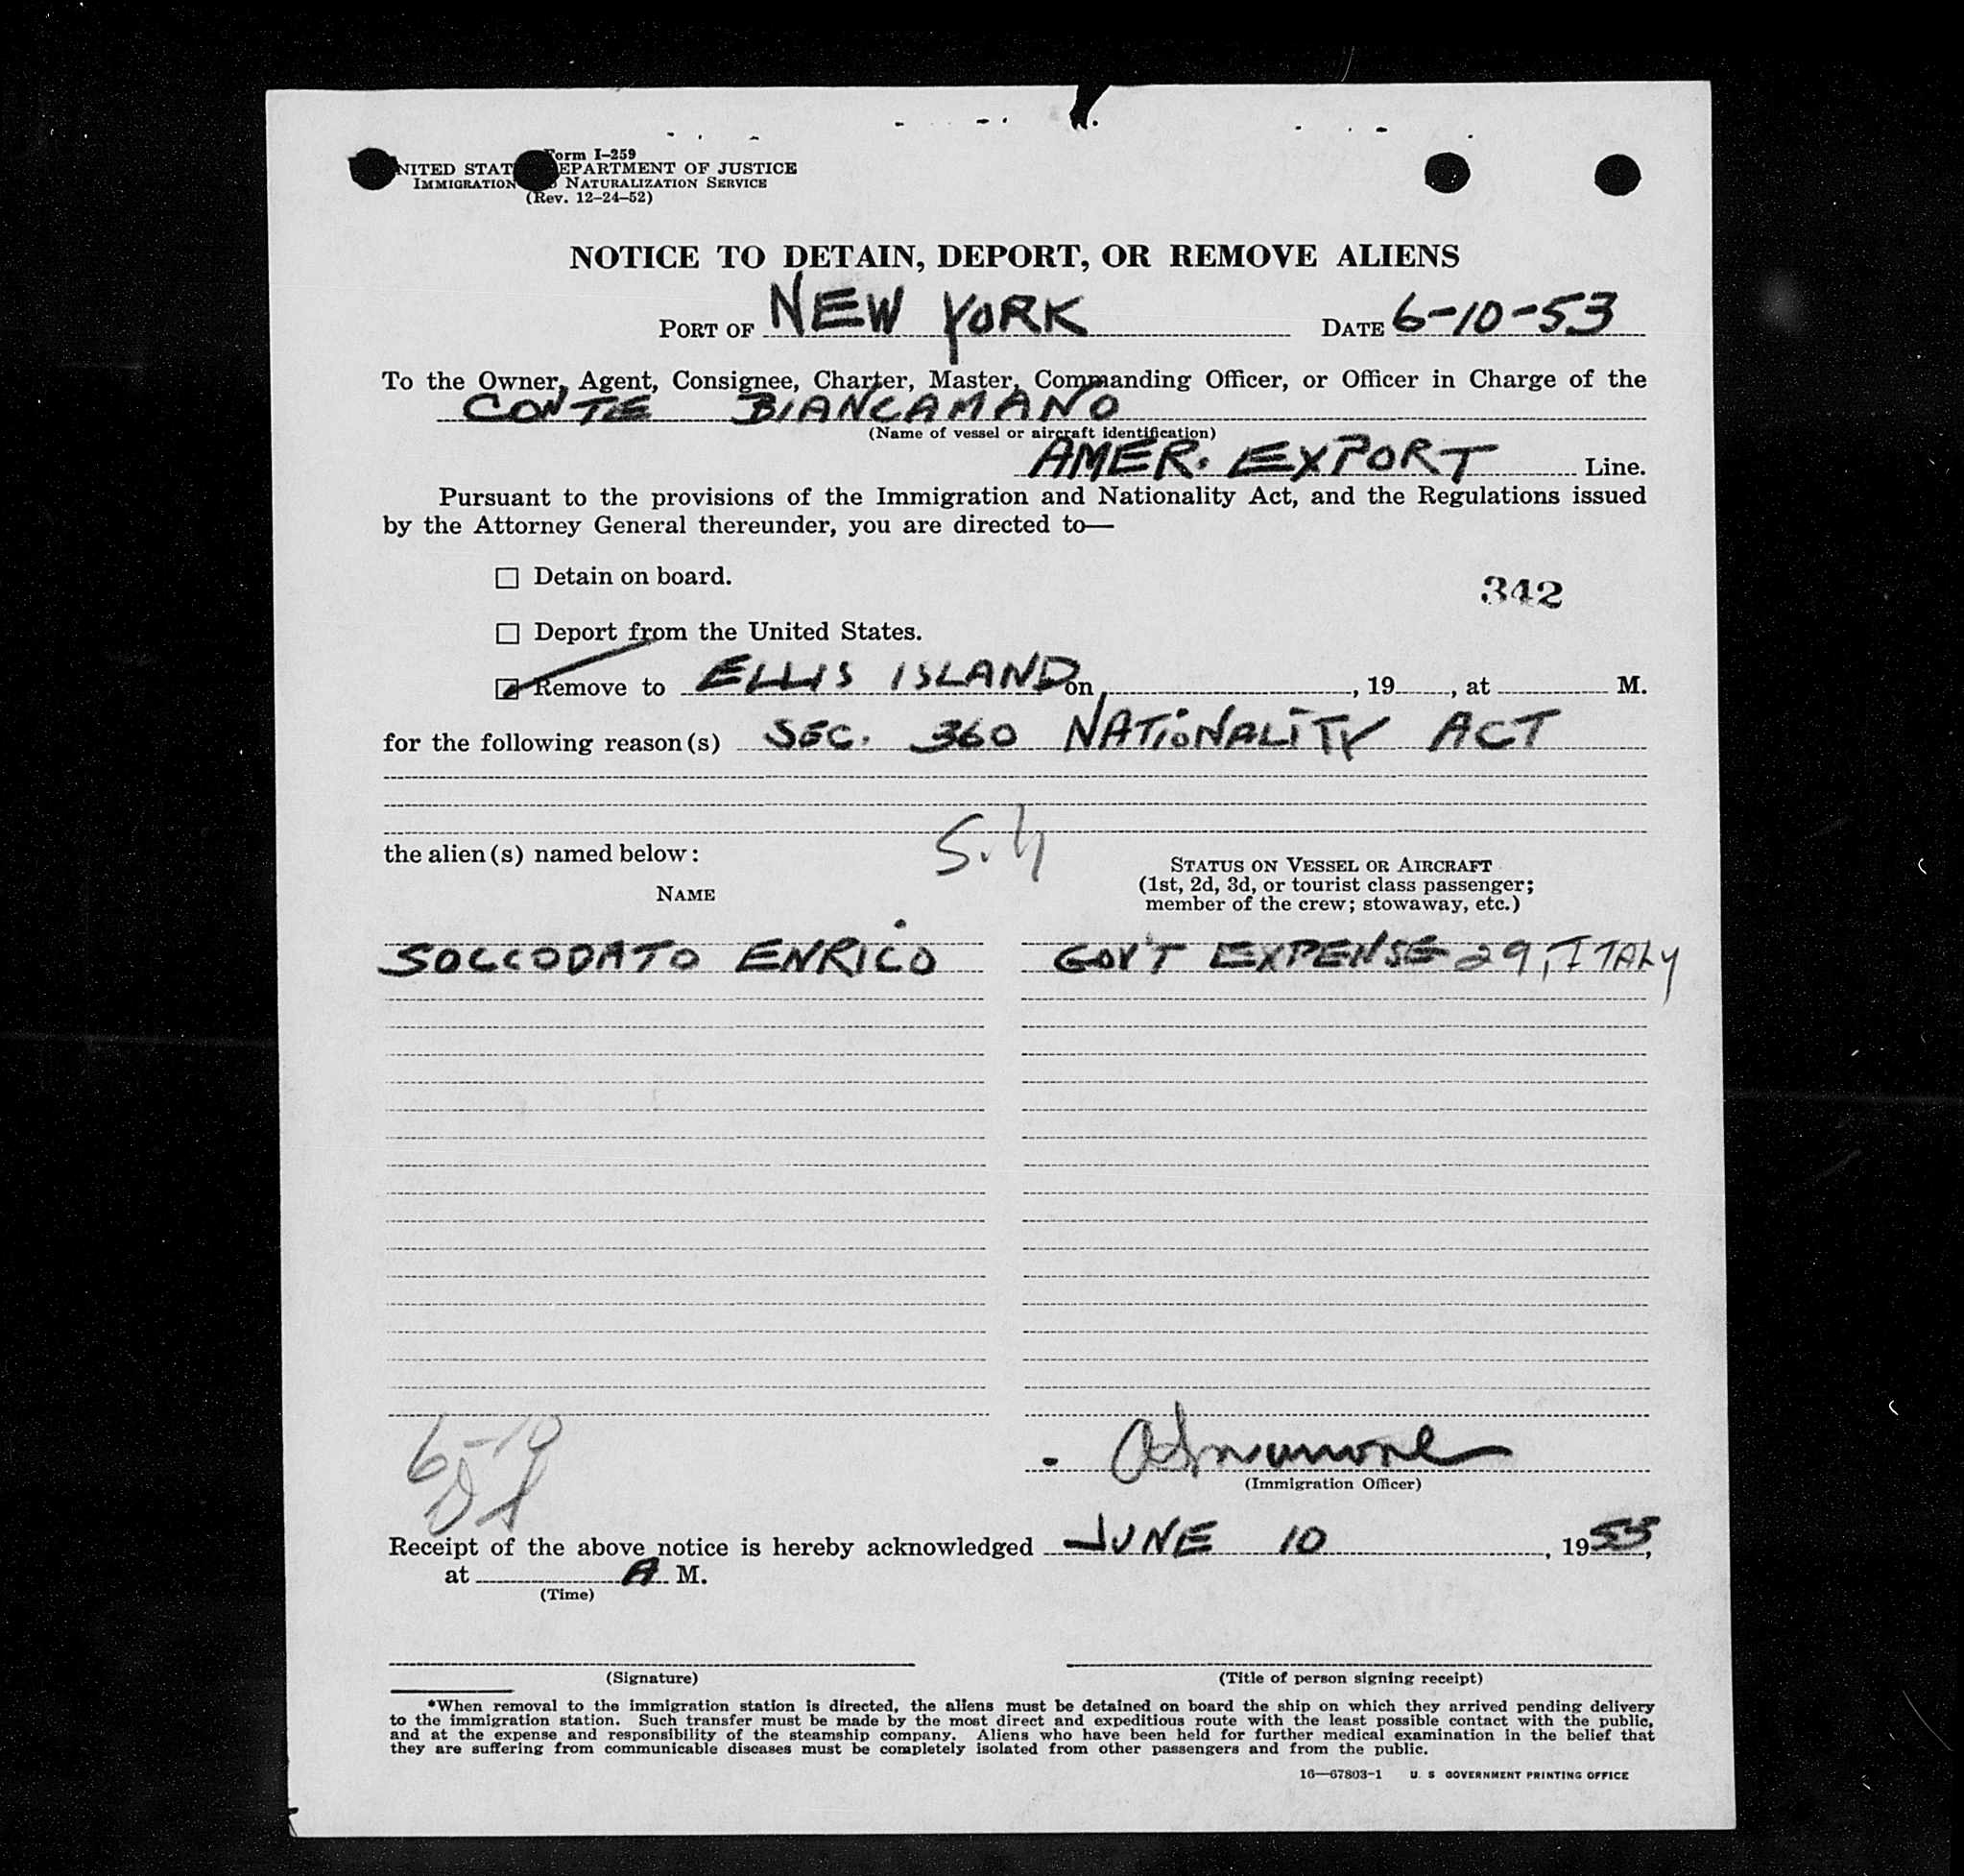 Form I-259
UNITED STATES DEPARTMENT OF JUSTICE
IMMIGRATION AND NATURALIZATION SERVICE
(Rev. 12-24-52)
NOTICE TO DETAIN, DEPORT, OR REMOVE ALIENS
PORT OF NEW YORK DATE 6-10-53
To the Owner, Agent, Consignee, Charter, Master, Commanding Officer, or Officer in Charge of the
CONTE BIANCAMANO
(Name of vessel or aircraft identification)
AMER. EXPORT Line.
Pursuant to the provisions of the Immigration and Nationality Act, and the Regulations issued
by the Attorney General thereunder, you are directed to—
Detain on board.
342
Deport from the United States.
Remove to ELLIS ISLAND on , 19 , at M.
for the following reason(s) SEC. 360 NATIONALITY ACT
the alien(s) named below:
NAME
STATUS ON VESSEL OR AIRCRAFT
(1st, 2d, 3d, or tourist class passenger;
member of the crew; stowaway, etc.)
SOCCODATO ENRICO GOV'T EXPENSE 29, ITALY
6-10
(Immigration Officer)
Receipt of the above notice is hereby acknowledged JUNE 10, 1953,
at A M.
(Time)
(Signature) (Title of person signing receipt)
*When removal to the immigration station is directed, the aliens must be detained on board the ship on which they arrived pending delivery
to the immigration station. Such transfer must be made by the most direct and expeditious route with the least possible contact with the public,
and at the expense and responsibility of the steamship company. Aliens who have been held for further medical examination in the belief that
they are suffering from communicable diseases must be completely isolated from other passengers and from the public.
16—67803-1 U. S GOVERNMENT PRINTING OFFICE